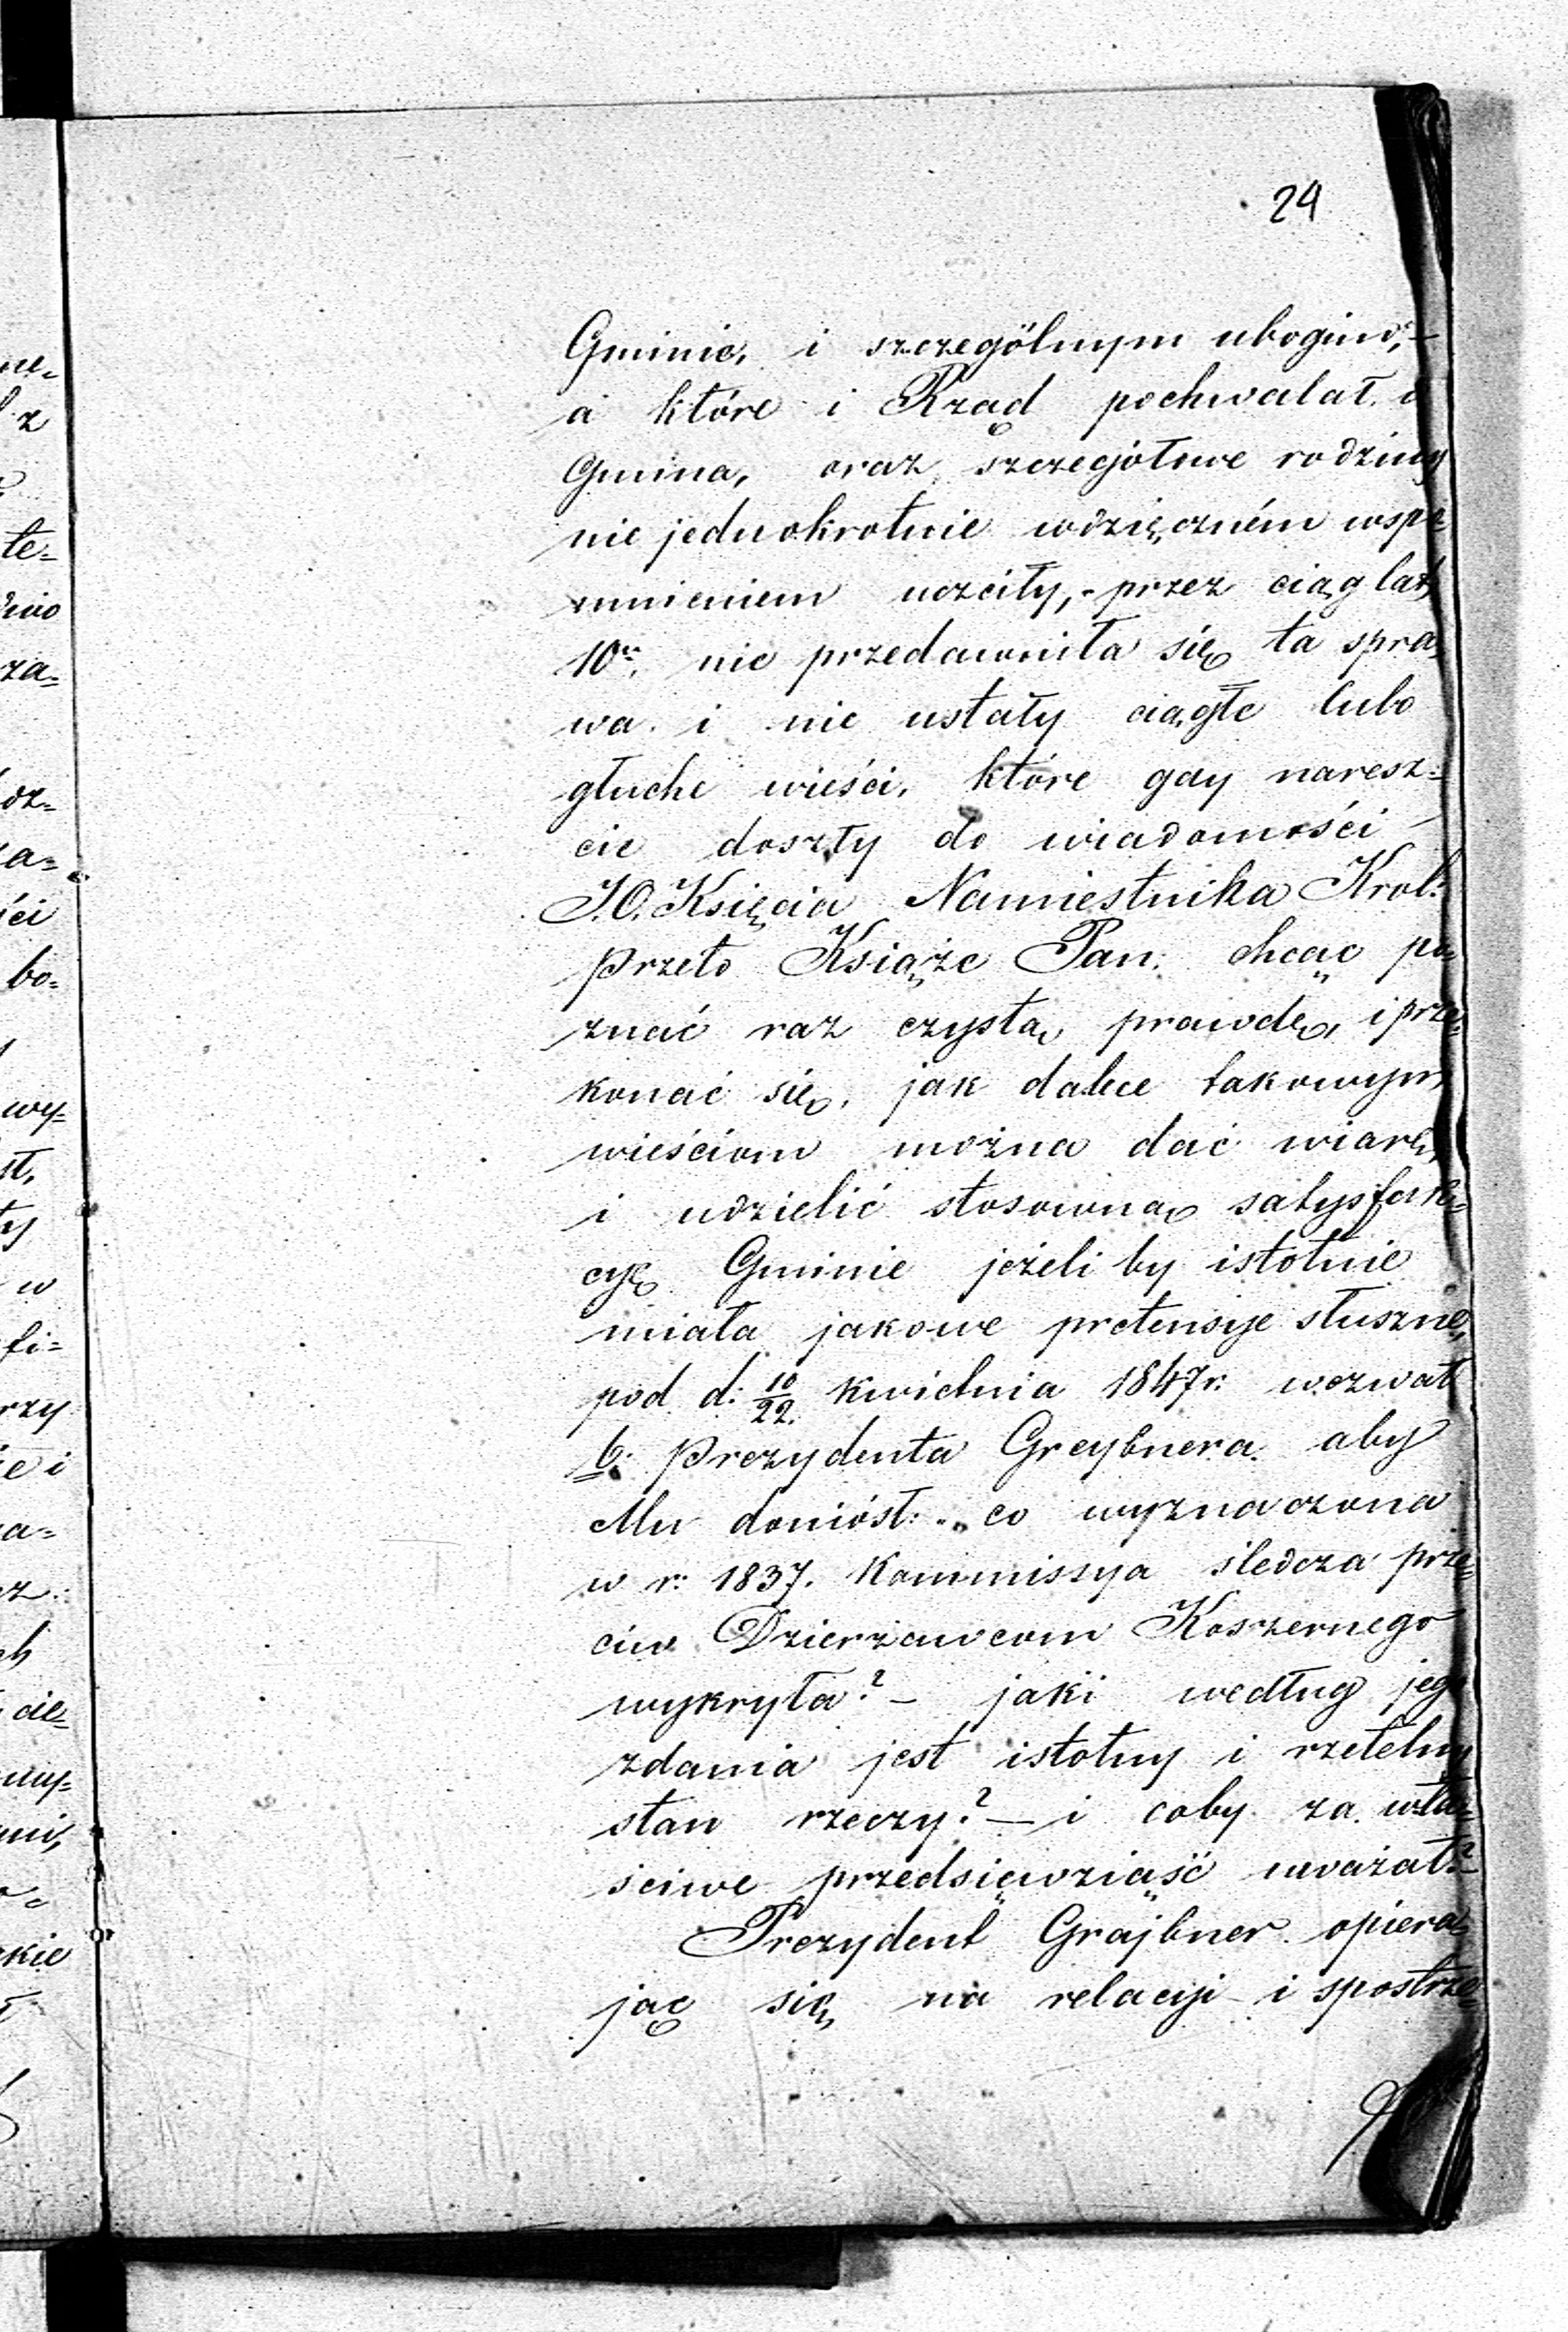 24
Gminie, i szczególnym ubogim,
a które i Rząd pochwalał i
Gmina, oraz szczegółowe rodziny
nie jednokrotnie wdzięczném wspo
mnieniem uczciły, - przez ciąg lat
10u. nie przedawniła się ta spra
wa. i nie ustały ciągłe lubo
głuche wieści, które gdy naresz=
cie doszły do wiadomości
J.O. Księcia Namiestnika Krol:
przeto Książe Pan: chcąc po=
znać raz czystą prawdę, i prze=
konać się, jak dalece takowym
wieściom można dać wiarę,
i udzielić stosowną satysfak=
cyę Gminie jeżeli by istotnie
miała jakowe pretensye słuszne,
pod d: 10/22. Kwietnia 1847r: wezwał
b: Prezydenta Greybnera. aby
Mu doniósł: - co wyznaczona
w r: 1837. Kommissya śledcza prze=
ciw Dzierżawcom Koszernego
wykryła? — jaki według jego
zdania jest istotny i rzetelny
stan rzeczy? — i coby za wła=
ściwe przedsięwziąść uważał? —
Prezydent Grajbner opiera=
jąc się na relacyi i spostrze=
ne=
z
te=
za=
dz=
za=
ści
bo=
wy=
st,
ty
w
fi=
rzy
ie i
na=
cz:
ch
cie=
wy=
mi,
skie